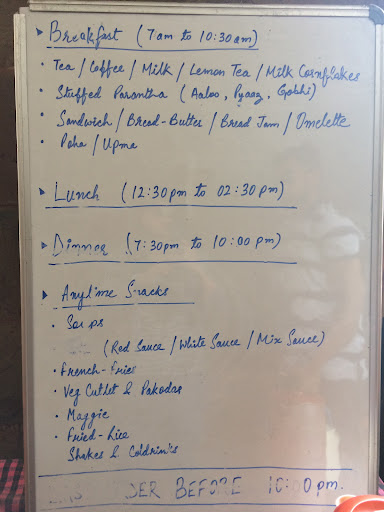 Breakfast (7am to 10:30am)
• Tea / Coffee / Milk / Lemon Tea / Milk Cornflakes
• Stuffed Parantha (Aaloo, Pyaaz, Gobhi)
• Sandwich / Bread-Butter / Bread Jam / Omelette
• Poha / Upma
Lunch (12:30pm to 02:30pm)
Dinner (7:30pm to 10:00pm)
Anytime Snacks
• Soups
(Red Sauce / White Sauce / Mix Sauce)
• French-Fries
• Veg Cutlet & Pakodas
• Maggie
• Fried-Rice
Shakes & Coldrinks
BEFORE 10:00pm.